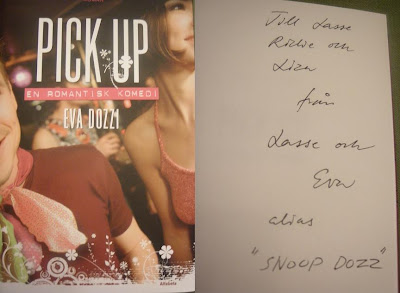 PICK UP
EN ROMANTISK KOMEDI
EVA DOZZI
Till Lasse
och
Liza
från
Lasse och
Eva
alias
"SNOOP DOZZ"